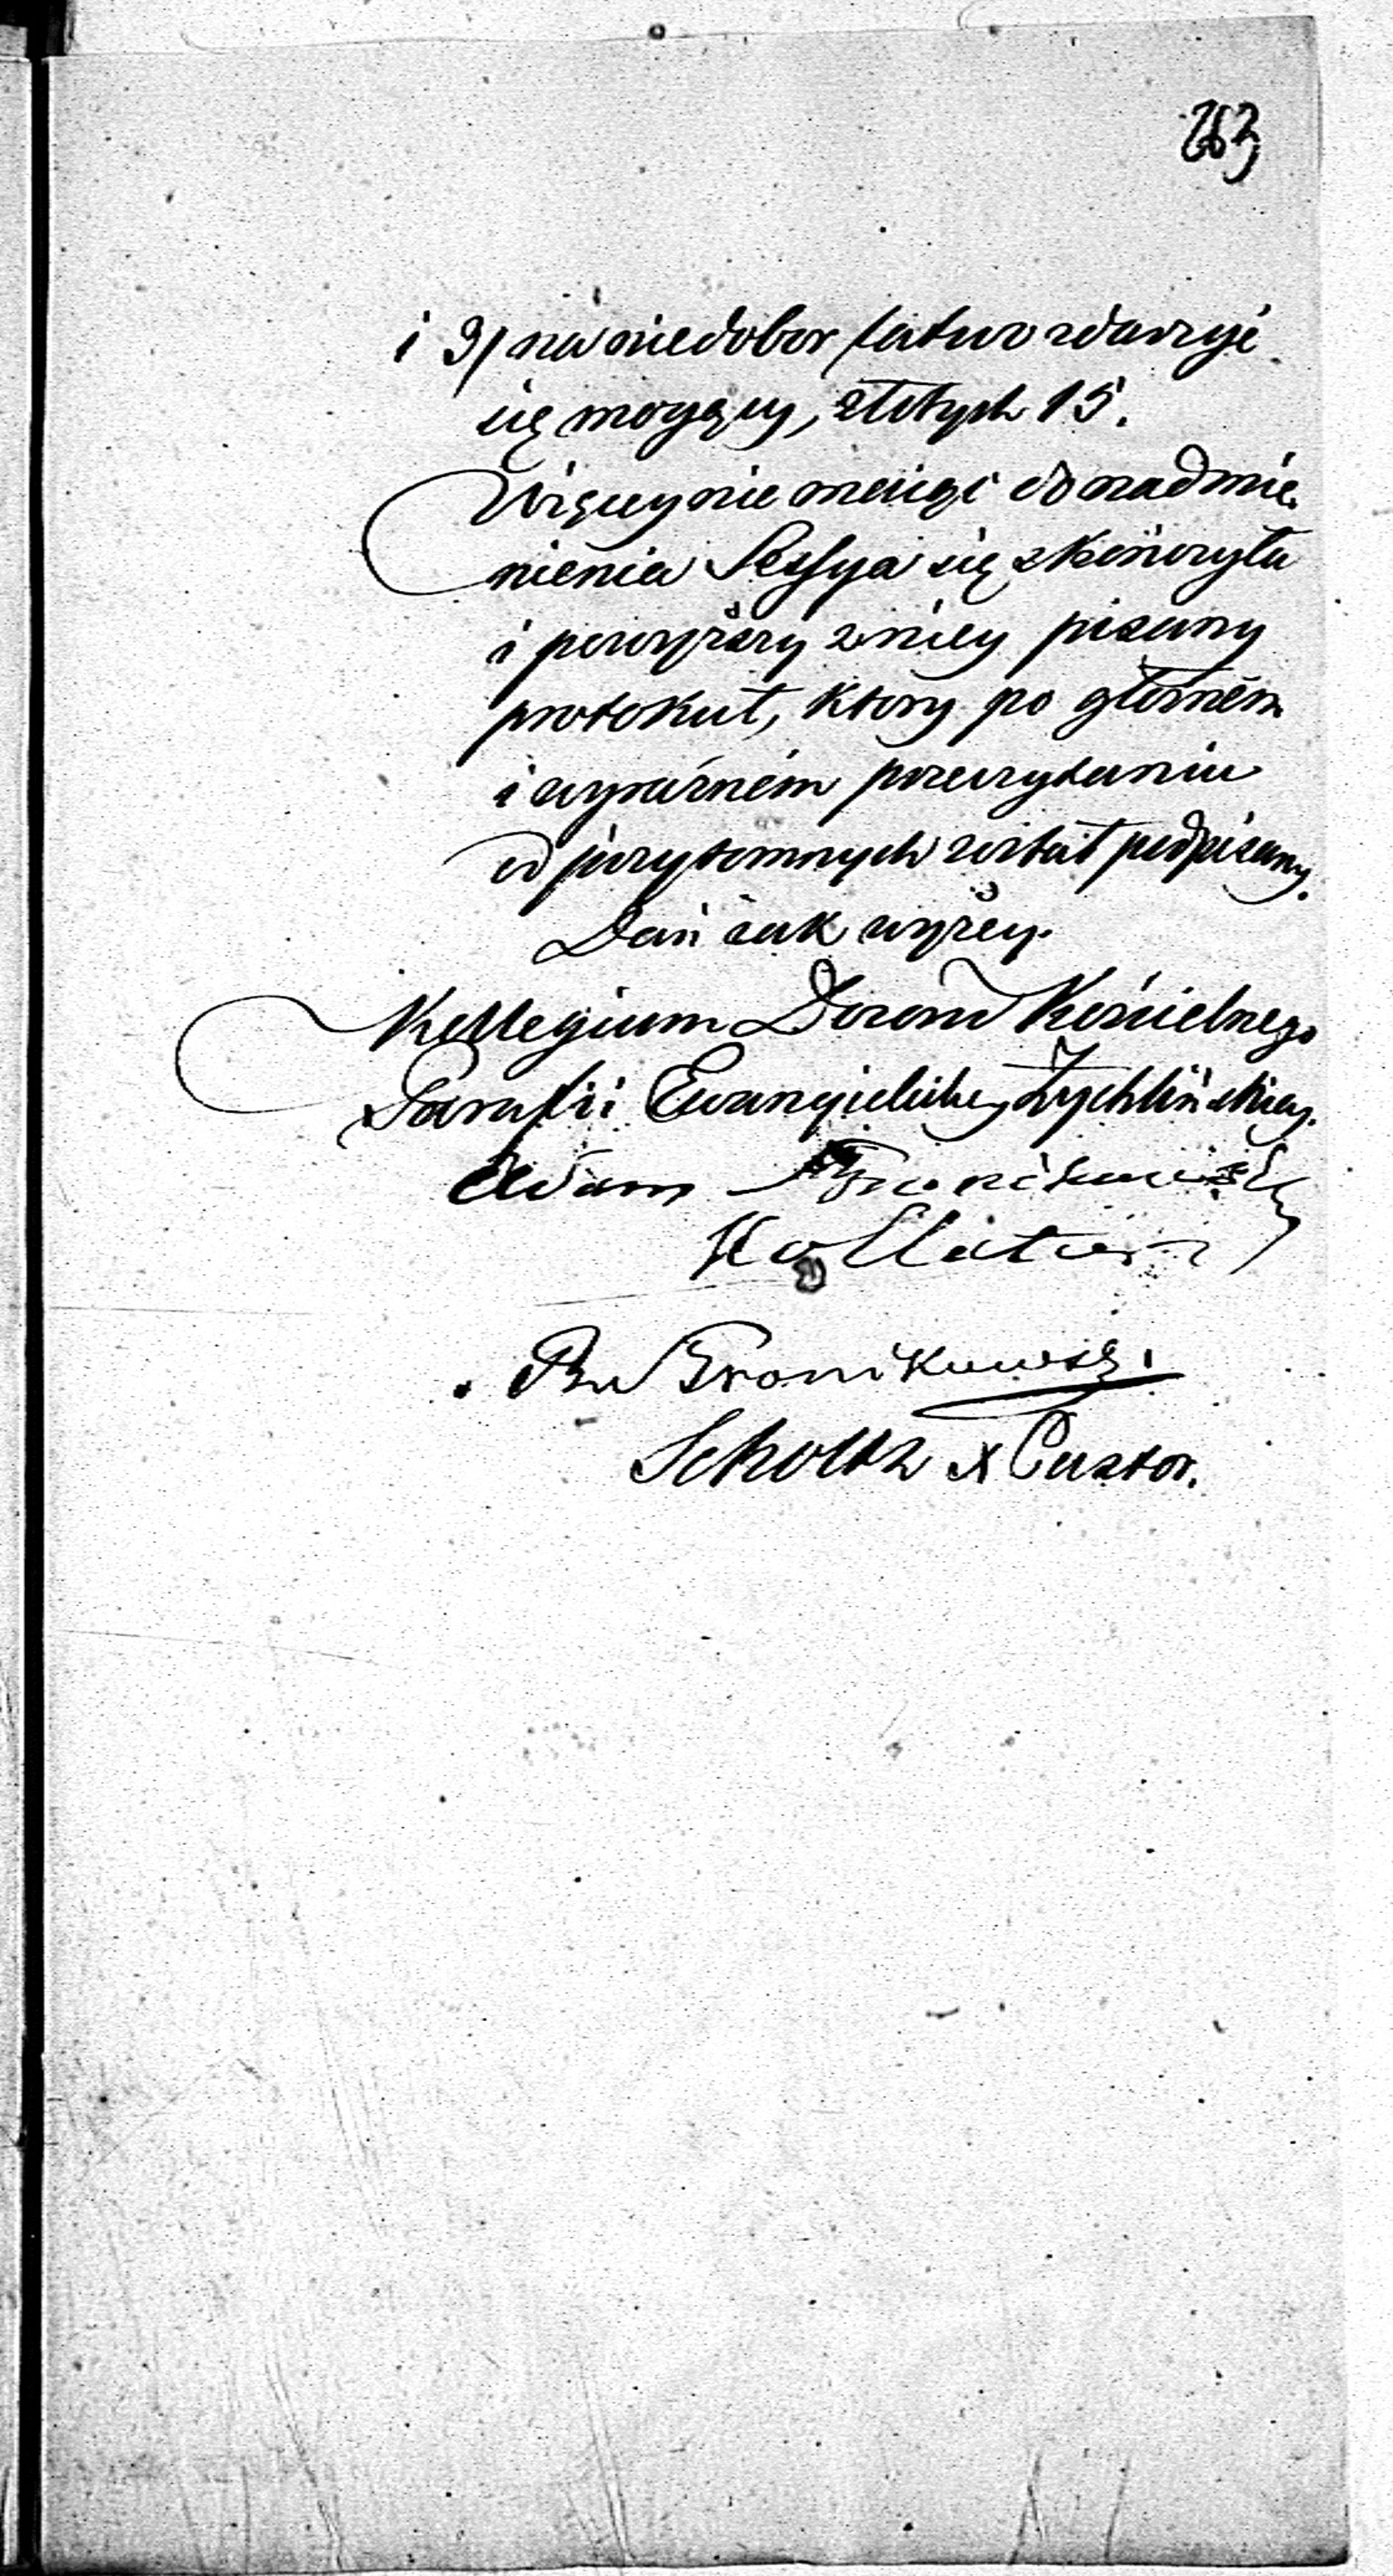 263
i 3/ na niedobor łatwo zdarzyć
się mogący, złotych 15.
Więcey nie maiąc do nadmie-
nienia Sessya się skończyła
i powyższy z niey pisany
protokuł, ktory po głośném
i wyraźném przeczytaniu
od przytomnych został podpisany.
Dań iak wyżey.
Kollegium Dozoru Kościelnego
Parafii Ewangielickiey Żychlińskiey.
Adam Bronikowski
Kollator
Bronikowski.
Scholtz X Pastor.